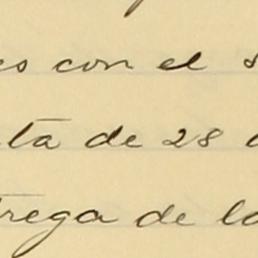 es con el s
ta de 28 d
trega de la